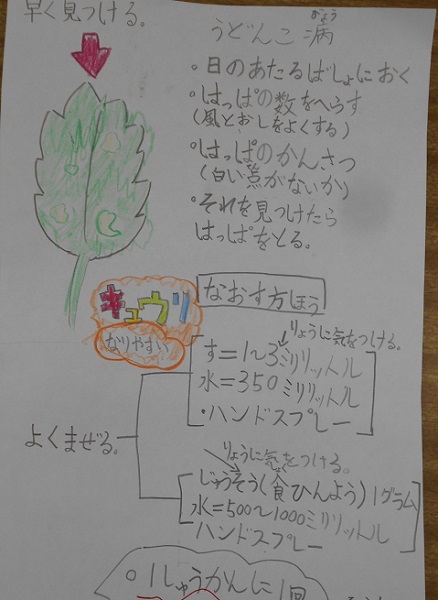 早く見つける。
うどんこ病
びょう
・日のあたるばしょにおく
・はっぱの数をへらす
(風とおしをよくする)
・はっぱのかんさつ
(白い点がないか)
・それを見つけたら
はっぱをとる。
キュウリ
なりやすい
なおす方ほう
りょうに気をつける。
す=1~3ミリリットル
水=350ミリリットル
・ハンドスプレー
よくまぜる。
りょうに気をつける。
じゅうそう(食ひんよう)1グラム
水=500~1000ミリリットル
ハンドスプレー
・1しゅうかんに1回